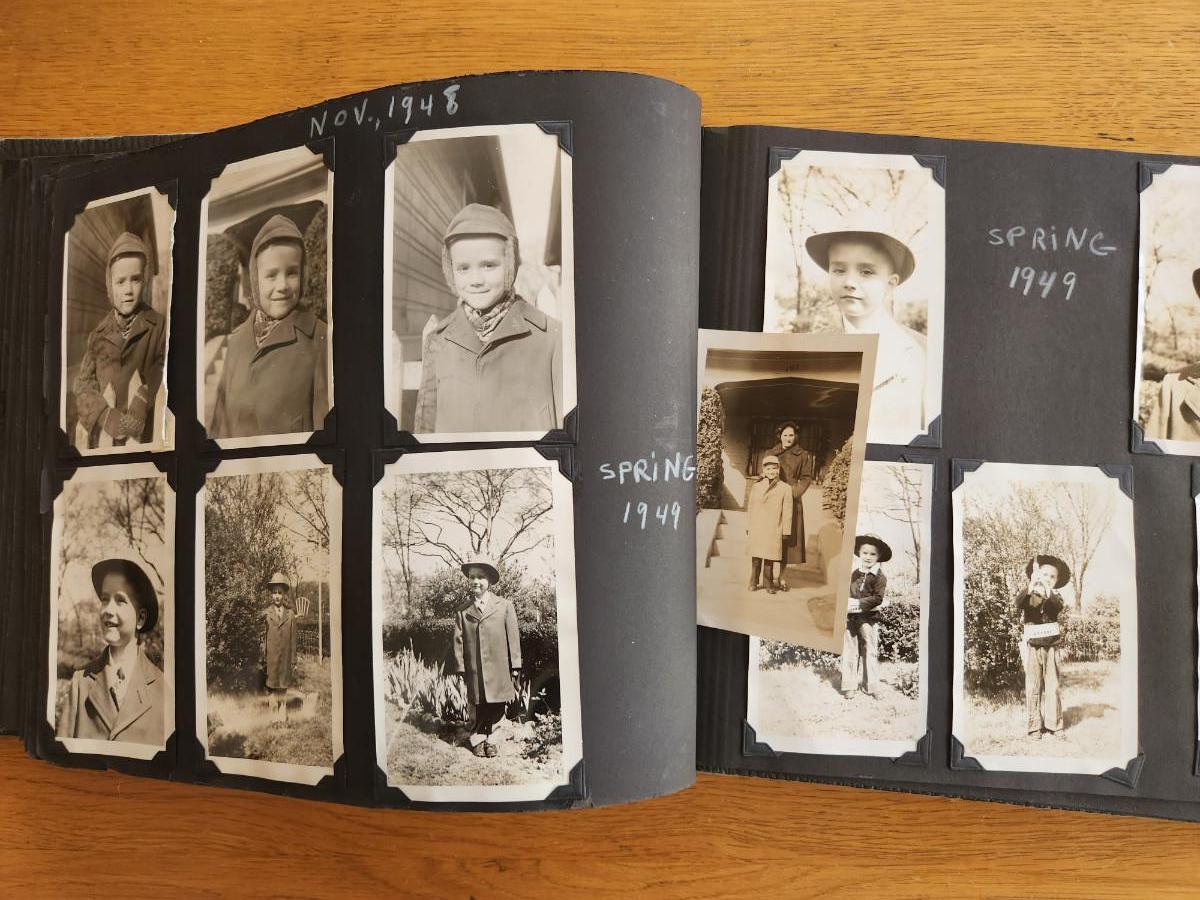 NOV., 1948
SPRING
1949
SPRING
1949